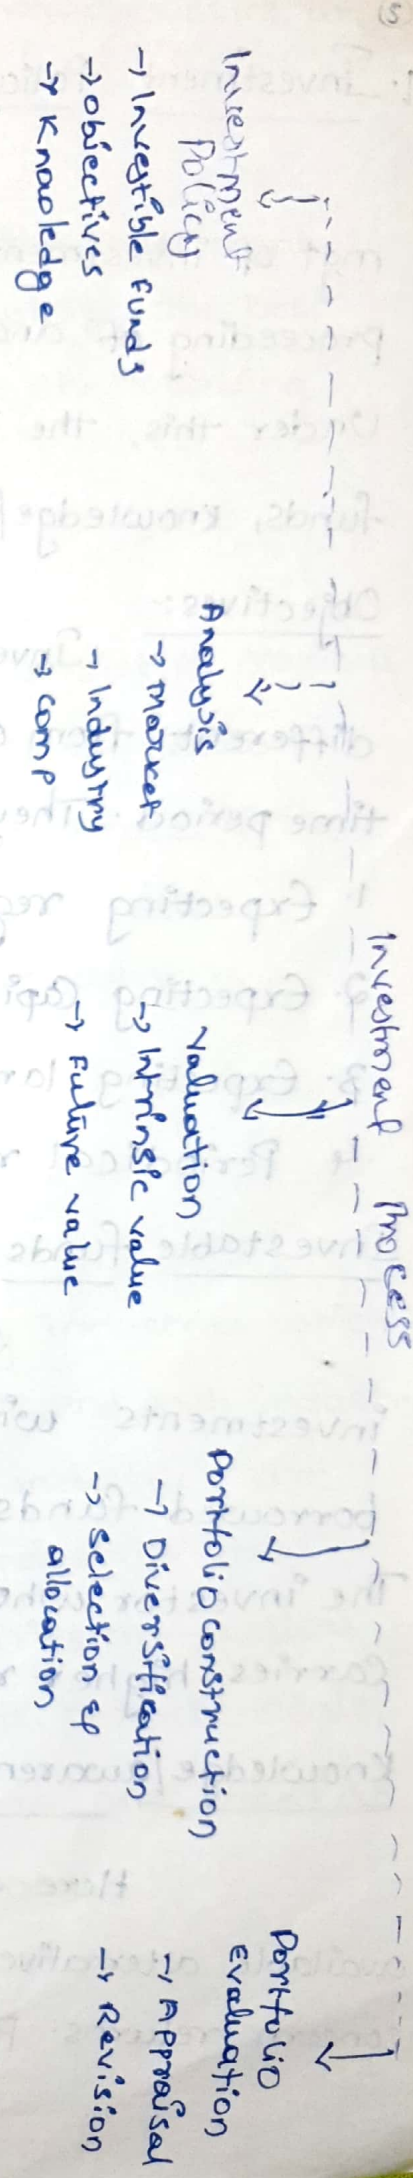 Investment Process
Investment
Policy
→ Investible funds
→ Objectives
→ Knowledge
Analysis
→ Market
→ Industry
→ Comp
Valuation
→ Intrinsic value
→ Future value
Portfolio construction
→ Diversification
→ Selection &
allocation
Portfolio
Evaluation
→ Appraisal
→ Revision